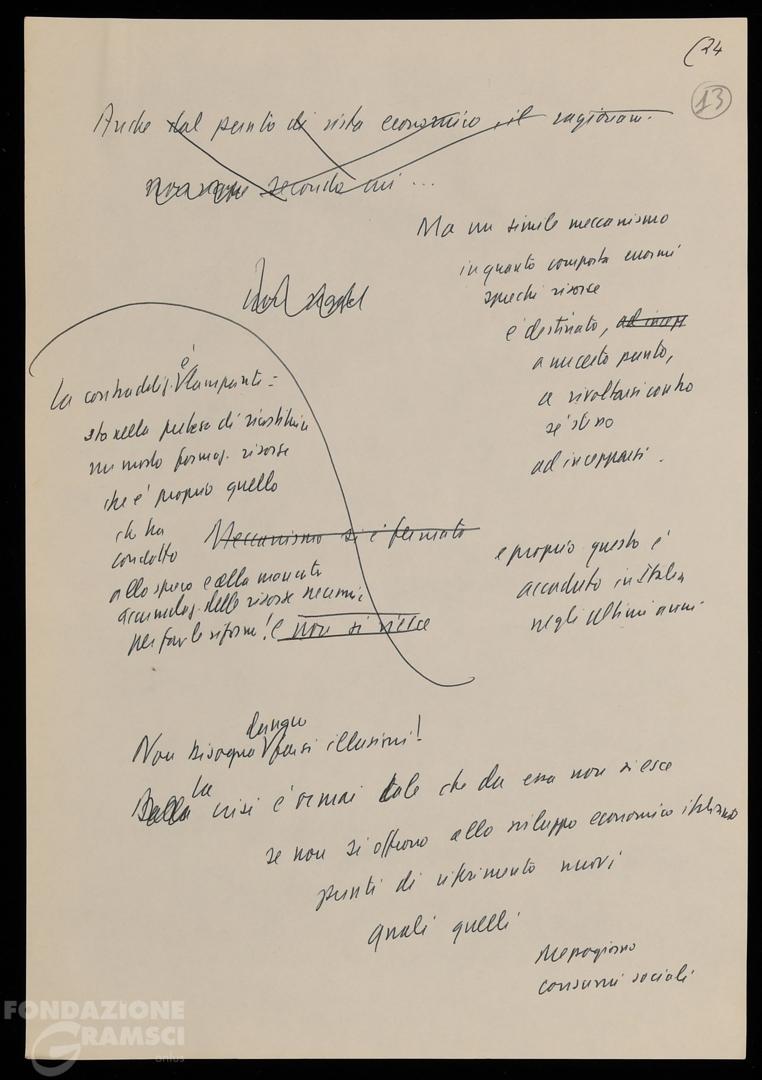 (24
13
Anche dal punto di vista economico, il ragionam.
secondo cui ...
Ma un simile meccanismo
in quanto comporta enormi
sprechi risorse
è destinato, ad incepp
a un certo punto,
a rivoltarsi contro
sé stesso
ad incepparsi.
e proprio questo è
accaduto in Italia
negli ultimi anni.
La contraddiz. è lampante =
sta nella pretesa di ricostituire
un modo formaz. risorse
che è proprio quello
che ha
condotto
allo spreco e alla mancata
accumulaz. delle risorse necessarie
per fare le riforme! E non si riesce
Meccanismo si è fermato
Non bisogna dunque farsi illusioni!
Dalla la crisi è ormai tale che da essa non si esce
se non si offrono allo sviluppo economico italiano
punti di riferimento nuovi
quali quelli
Mezzogiorno
consumi sociali
FONDAZIONE
GRAMSCI
onlus